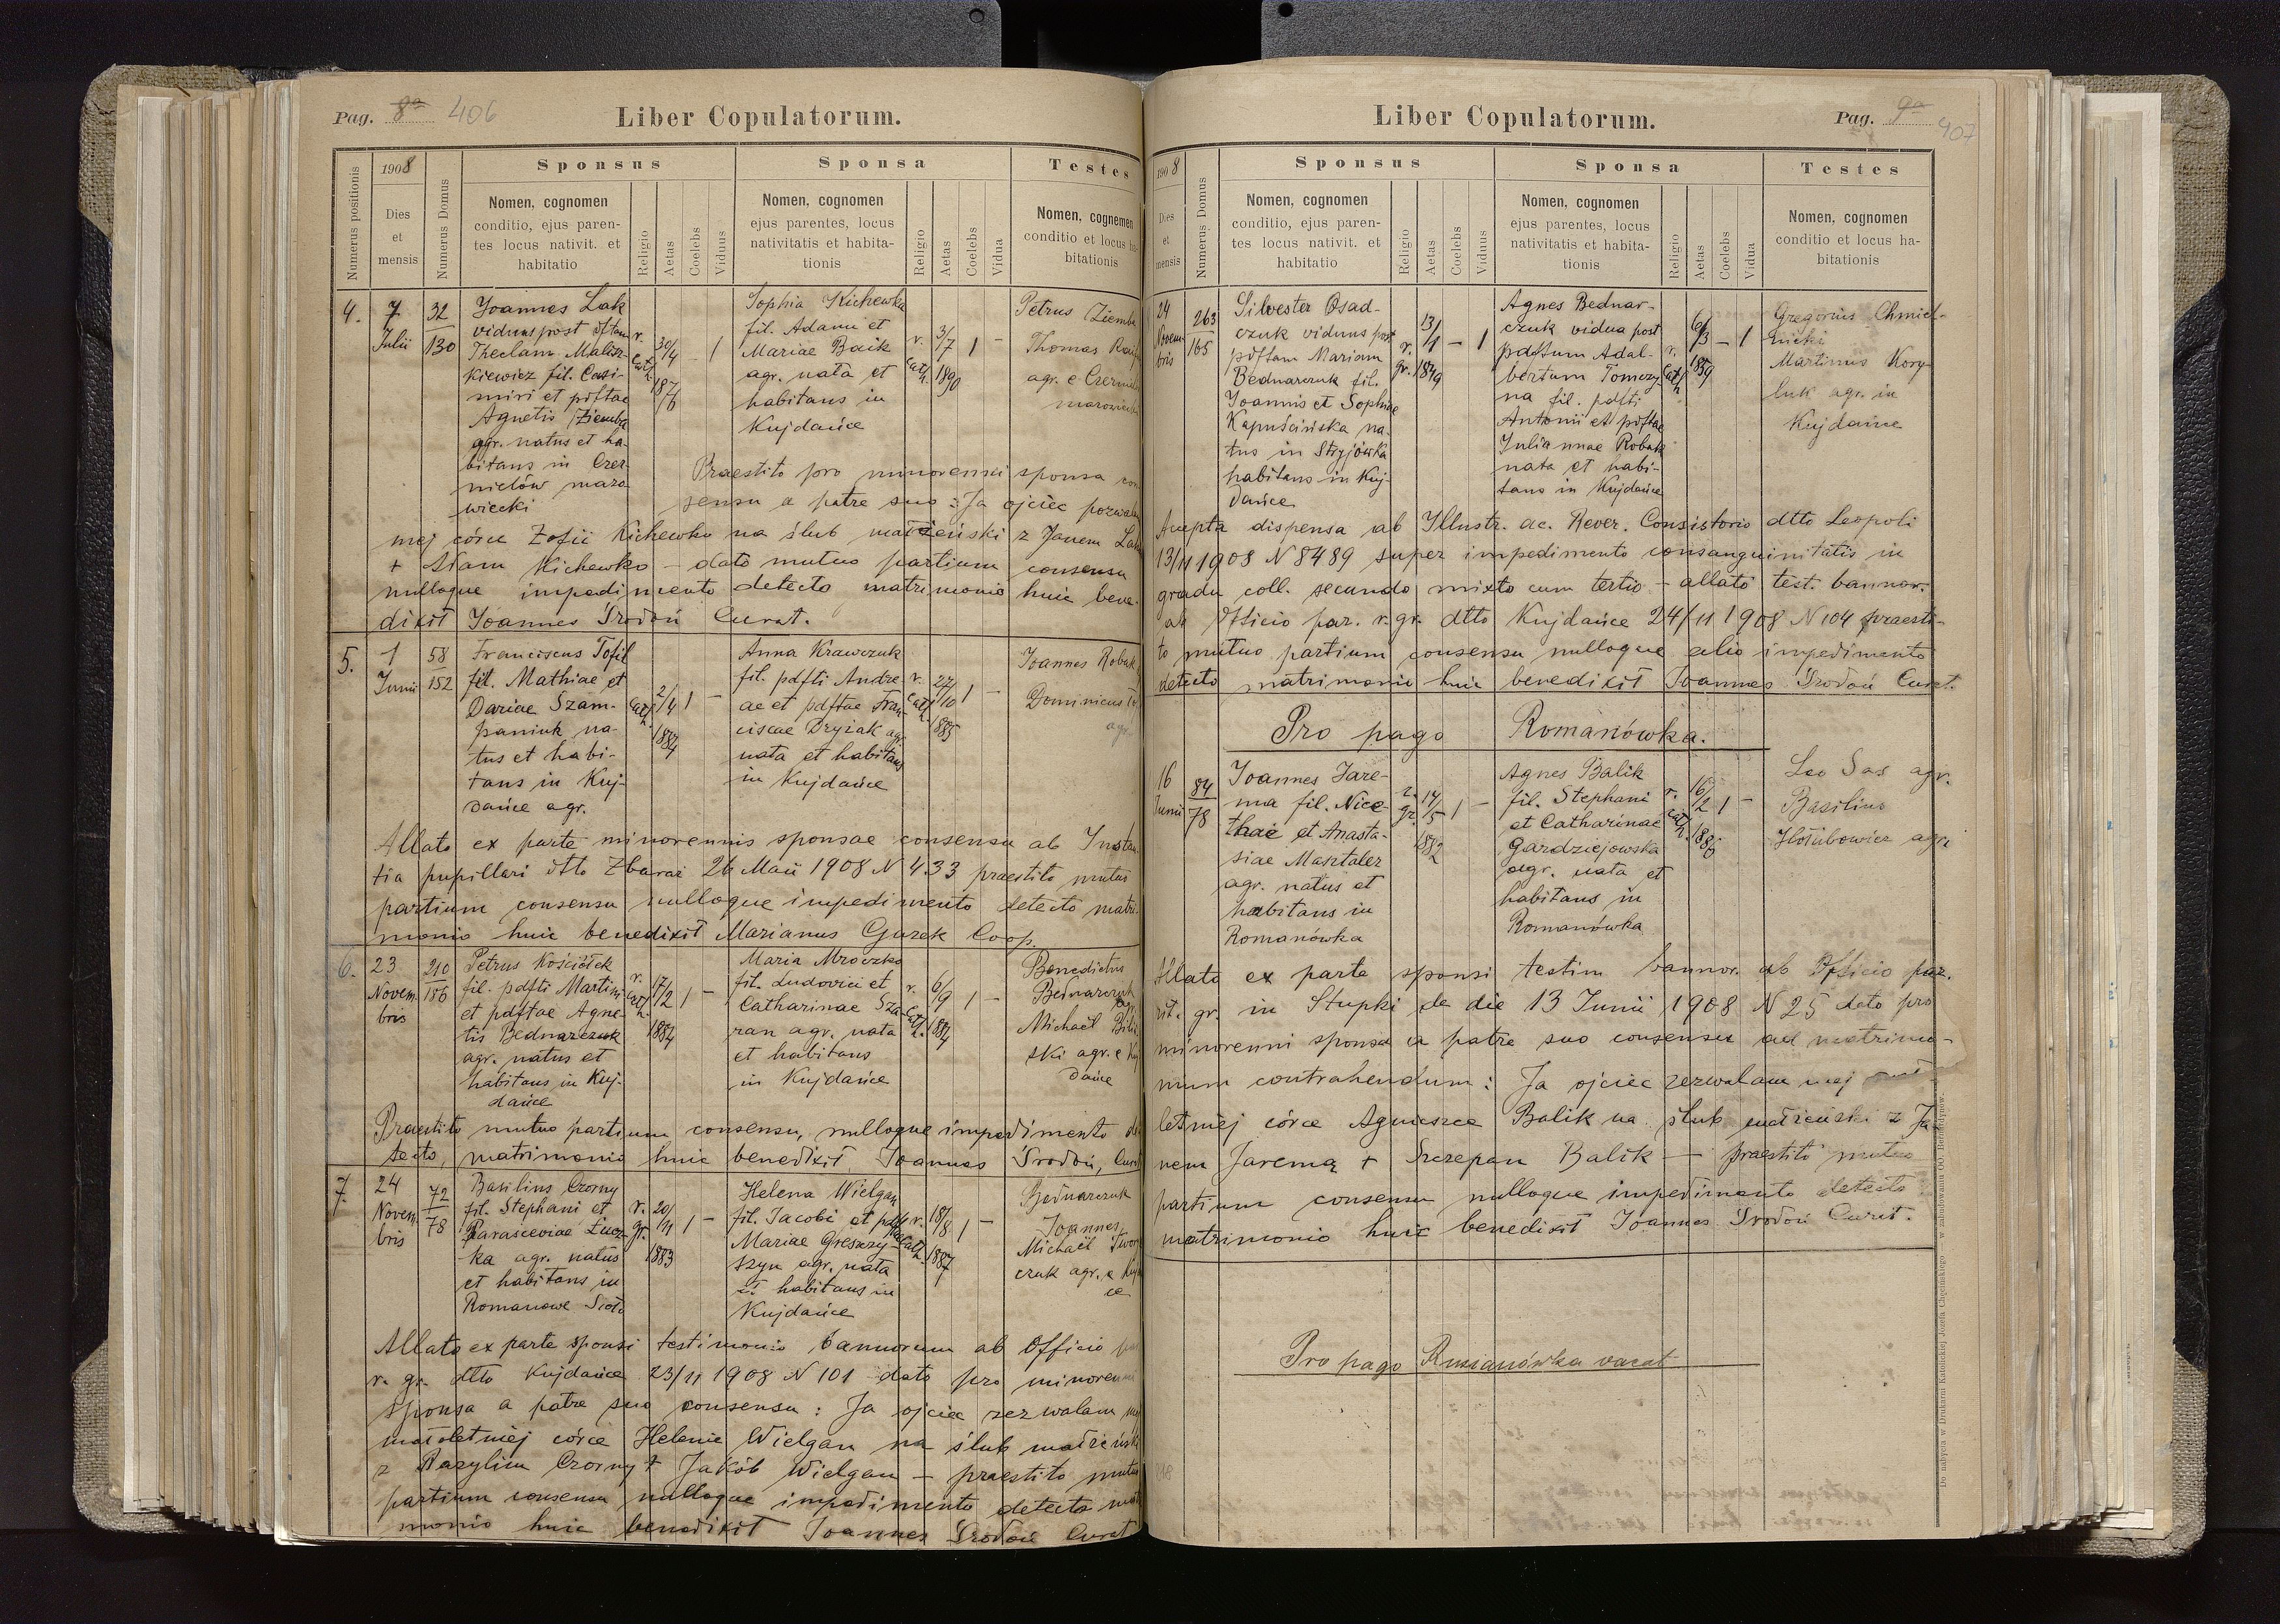 Pag. 8a 406
Liber Copulatorum.
Numerus positionis
1908
Dies
et
mensis
Numerus Domus
Sponsus
Nomen, cognomen
conditio, ejus paren-
tes locus nativit. et
habitatio
Religio
Aetas
Coelebs
Viduus
Sponsa
Nomen, cognomen
ejus parentes, locus
nativitatis et habita-
tionis
Religio
Aetas
Coelebs
Vidua
Testes
Nomen, cognomen
conditio et locus ha-
bitationis
4.
7
Julii
32
130
Joannes Lak
viduus post dftam
Theclam Malisz-
kiewicz fil. Casi-
miri et pdftae
Agnetis Ziemba
agr. natus et ha-
bitans in Czer-
nielów mazo
wiecki
r.
cath.
30/4
1876
- 1
Sophia Kichewka
fil. Adami et
Mariae Baik
agr. nata et
habitans in
Kujdańce
r.
cath.
3/7
1890
1 -
Petrus Ziemba
Thomas
agr. e Czerniel
mazowiecki
Praestito pro minorenni sponsa con
sensu a patre suo: Ja ojciec pozwalam
mej córce Zofii Kichewko na ślub małżeński z Janem Lak
+ Adam Kichewko - dato mutuo partium consensu
nulloque impedimento detecto matrimonio huic bene-
dixit Joannes Srodoń Curat.
5.
1
Junii
58
152
Franciscus Tofil
fil. Mathiae et
Dariae Szam-
paniuk na-
tus et habi-
tans in Kuj-
dańce agr.
cath.
2/4
1884
1 -
Anna Krawczuk
fil. pdfti Andre
ae et pdftae Fran-
ciscae Dryżak agr.
nata et habitans
in Kujdańce
r.
cath.
27/10
1885
1 -
Joannes Robak
Dominicus
agr.
Allato ex parte minorennis sponsae consensu ab Instan
tia pupillari dtto Zbaraż 26 Maii 1908 N 433 praestito mutuo
partium consensu nulloque impedimento detecto matri-
monio huic benedixit Marianus Gurek Coop.
6.
23
Novem-
bris
210
186
Petrus Kościółek
fil. pdfti Martini
et pdftae Agne-
tis Bednarczuk
agr. natus et
habitans in Kuj-
dańce
r.
cath.
17/2
1884
1 -
Maria Mroczko
fil. Ludovici et
Catharinae Sza-
ran agr. nata
et habitans
in Kujdańce
r.
cath.
6/9
1884
1 -
Benedictus
Bednarczuk
agr.
Michaël
ski agr. e Kuj
dańce
Praestito mutuo partium consensu, nulloque impedimento de
tecto, matrimonio huic benedixit Joannes Srodoń, Curat
7.
24
Novem-
bris
72
78
Basilius Czorny
fil. Stephani et
Parasceviae Łucz-
ka agr. natus
et habitans in
Romanowe Sioło
r.
gr.
20/11
1883
1 -
Helena Wielgan
fil. Jacobi et pdftae
Mariae Greszczy-
szyn agr. nata
et habitans in
Kujdańce
r.
cath.
18/8
1887
1 -
Bednarczuk
Joannes,
Michaël Twor
czuk agr. e Kujdań
ce
Allato ex parte sponsi testimonio bannorum ab Officio par
r. gr. dtto Kujdańce 23/11 1908 N 101 dato pro minorenni
sponsa a patre suo consensu: Ja ojciec zezwalam mej
małoletniej córce Helenie Wielgan na ślub małżeński
z Bazylim Czorny + Jakób Wielgan - praestito mutuo
partium consensu nulloque impedimento detecto matri
monio huic benedixit Joannes Srodoń Curat
Liber Copulatorum.
Pag. 9a 407
1908
Dies
et
mensis
Numerus Domus
Sponsus
Nomen, cognomen
conditio, ejus paren-
tes locus nativit. et
habitatio
Religio
Aetas
Coelebs
Viduus
Sponsa
Nomen, cognomen
ejus parentes, locus
nativitatis et habita-
tionis
Religio
Aetas
Coelebs
Vidua
Testes
Nomen, cognomen
conditio et locus ha-
bitationis
24
Novem-
bris
263
165
Silvester Osad-
czuk viduus post
pdftam Mariam
Bednarczuk fil.
Joannis et Sophiae
Kapuścińska na-
tus in Stryjówka
habitans in Kuj-
dańce
r.
gr.
13/1
1849
- 1
Agnes Bednar-
czuk vidua post
pdftum Adal-
bertum Tomczy-
na fil. pdfti
Antonii et pdftae
Julianae Robak
nata et habi-
tans in Kujdańce
r.
cath.
6/3
1859
- 1
Gregorius Chmiel-
nicki
Martinus Kory-
luk agr. in
Kujdańce
Accepta dispensa ab Illustr. ac. Rever. Consistorio dtto Leopoli
13/11 1908 N 8489 super impedimento consanguinitatis in
gradu coll. secundo mixto cum tertio - allato test. bannor.
ab Officio par. r. gr. dtto Kujdańce 24/11 1908 N 104 praesti-
to mutuo partium consensu nulloque alio impedimento
detecto matrimonio huic benedixit Joannes Srodoń Curat.
Pro pago Romanówka.
16
Junii
84
78
Joannes Jare-
ma fil. Nice-
thae et Anasta-
siae Masztaler
agr. natus et
habitans in
Romanówka
r.
gr.
14/5
1882
1 -
Agnes Balik
fil. Stephani
et Catharinae
Gardziejowska
agr. nata et
habitans in
Romanówka
r.
cath.
16/2
1886
1 -
Leo Sas agr.
Basilius
Hołubowicz agr.
Allato ex parte sponsi testim bannor. ab Officio par.
rit. gr. in Stupki de die 13 Junii 1908 N 25 dato pro
minorenni sponsa a patre suo consensu ad matrimo-
nium contrahendum: Ja ojciec zezwalam mej
letniej córce Agnieszce Balik na ślub małżeński z Ja-
nem Jaremą + Szczepan Balik - praestito mutuo
partium consensu nulloque impedimento detecto
matrimonio huic benedixit Joannes Srodoń Curat.
Pro pago Rusianówka vacat
Do nabycia w Drukarni Katolickiej Józefa Chęcińskiego w zabudowaniu OO. Bernardynów.